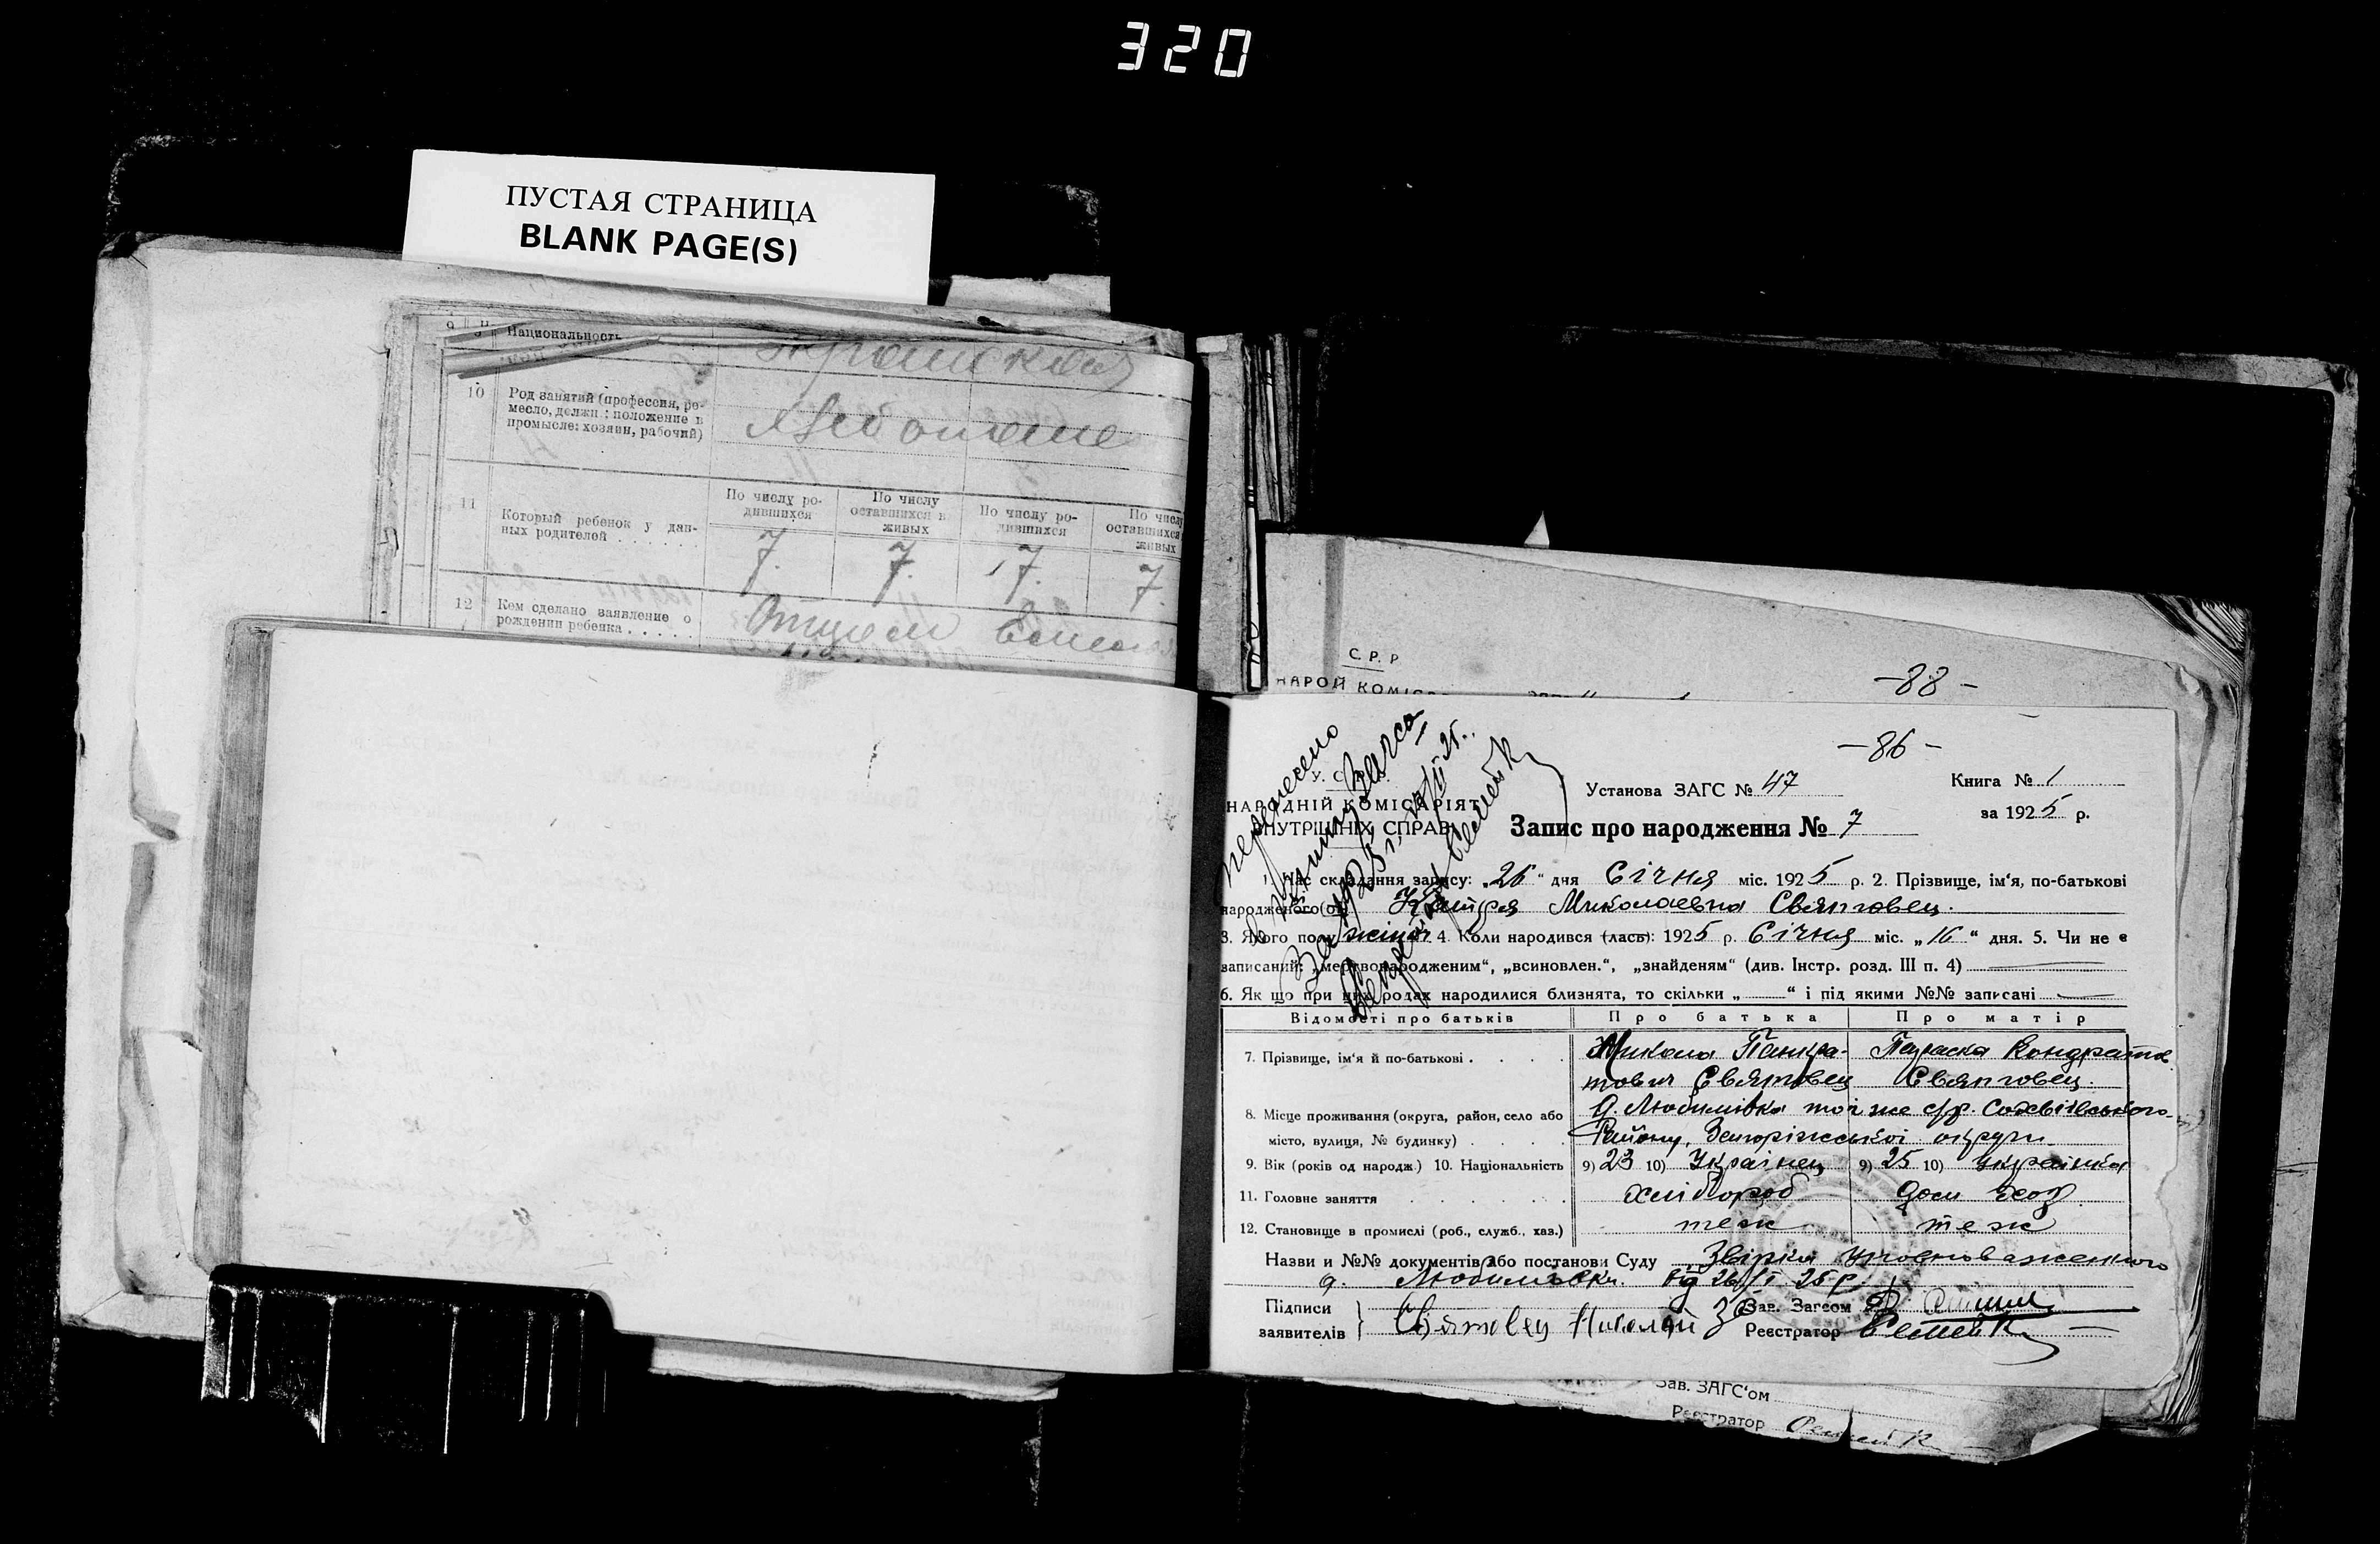 320
ПУСТАЯ СТРАНИЦА
BLANK PAGE(S)
9 Национальность
10 Род занятий (профессия, ре-
месло, должн.: положение в
промысле: хозяин, рабочий)
По числу ро-
дившихся
По числу
оставшихся в
живых
По числу ро-
дившихся
По числу
оставшихся
живых
11 Который ребенок у дан-
ных родителей . . . . . . .
7. 7. 7. 7.
12 Кем сделано заявление о
рождении ребенка . . . . .
Отцом
С. Р. Р
НАРОЙ КОМІС
-88-
-86-
У. С.
НАРОДНІЙ КОМІСАРІЯТ
ВНУТРІШНІХ СПРАВ
перенесено
Установа ЗАГС № 47
Книга № 1
Запис про народження № 7
за 1925 р.
1. Час складання запису: „26“ дня Січня міс. 1925 р. 2. Прізвище, ім‘я, по-батькові
народженого(ої) Миколаевна Святовец.
3. Якого полу жіноч. 4. Коли народився (лась): 1925 р. Січня міс. „16“ дня. 5. Чи не є
записаний: „мертвонародженим“, „всиновлен.“, „знайденям“ (див. Інстр. розд. III п. 4)
6. Як що при цих родах народилися близнята, то скільки „ “ і під якими №№ записані
Відомості про батьків Про батька Про матір
7. Прізвище, ім‘я й по-батькові . . . . Микола Панкра- Параска Кондратов
тович Святовец Святовец.
8. Місце проживання (округа, район, село або с. Любимівка тої же с/р.
місто, вулиця, № будинку) . . . . Району, Запоріжської округи
9. Вік (років од народж.) 10. Національність 9) 23 10) Українец 9) 25 10) Українка
11. Головне заняття . . . . . . хлібороб дом. хоз.
12. Становище в промислі (роб., служб., хаз.) теж теж
Назви и №№ документів або постанови Суду Звірка уповноваженого
с. Любимовки. від 26/I 25 р.
Підписи
заявителів } Святовец Николай Зав. Загсом
Реєстратор
Зав. ЗАГС‘ом
Реєстратор